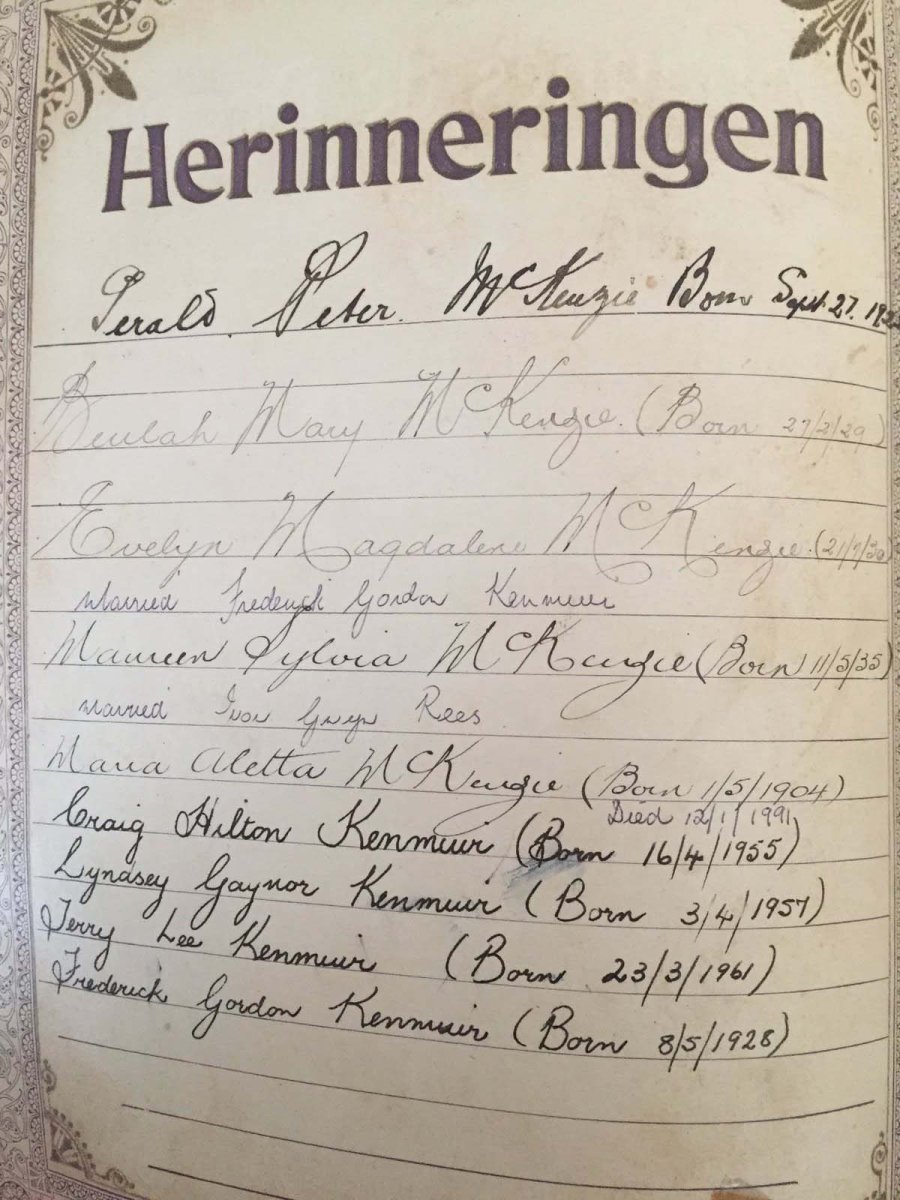 Herinneringen
Gerald Peter McKenzie Born Sept. 27. 19
Beulah Mary McKenzie. (Born 27/2/29)
Evelyn Magdalene McKenzie. (21/7/30)
Married Frederick Gordon Kenmuir
Maureen Sylvia McKenzie (Born 11/5/35)
Married Ivor Gwyn Rees
Maria Aletta McKenzie (Born 1/5/1904)
Died 12/1/1991
Craig Hilton Kenmuir (Born 16/4/1955)
Lyndsey Gaynor Kenmuir (Born 3/4/1957)
Terry Lee Kenmuir (Born 23/3/1961)
Frederick Gordon Kenmuir (Born 8/5/1928)